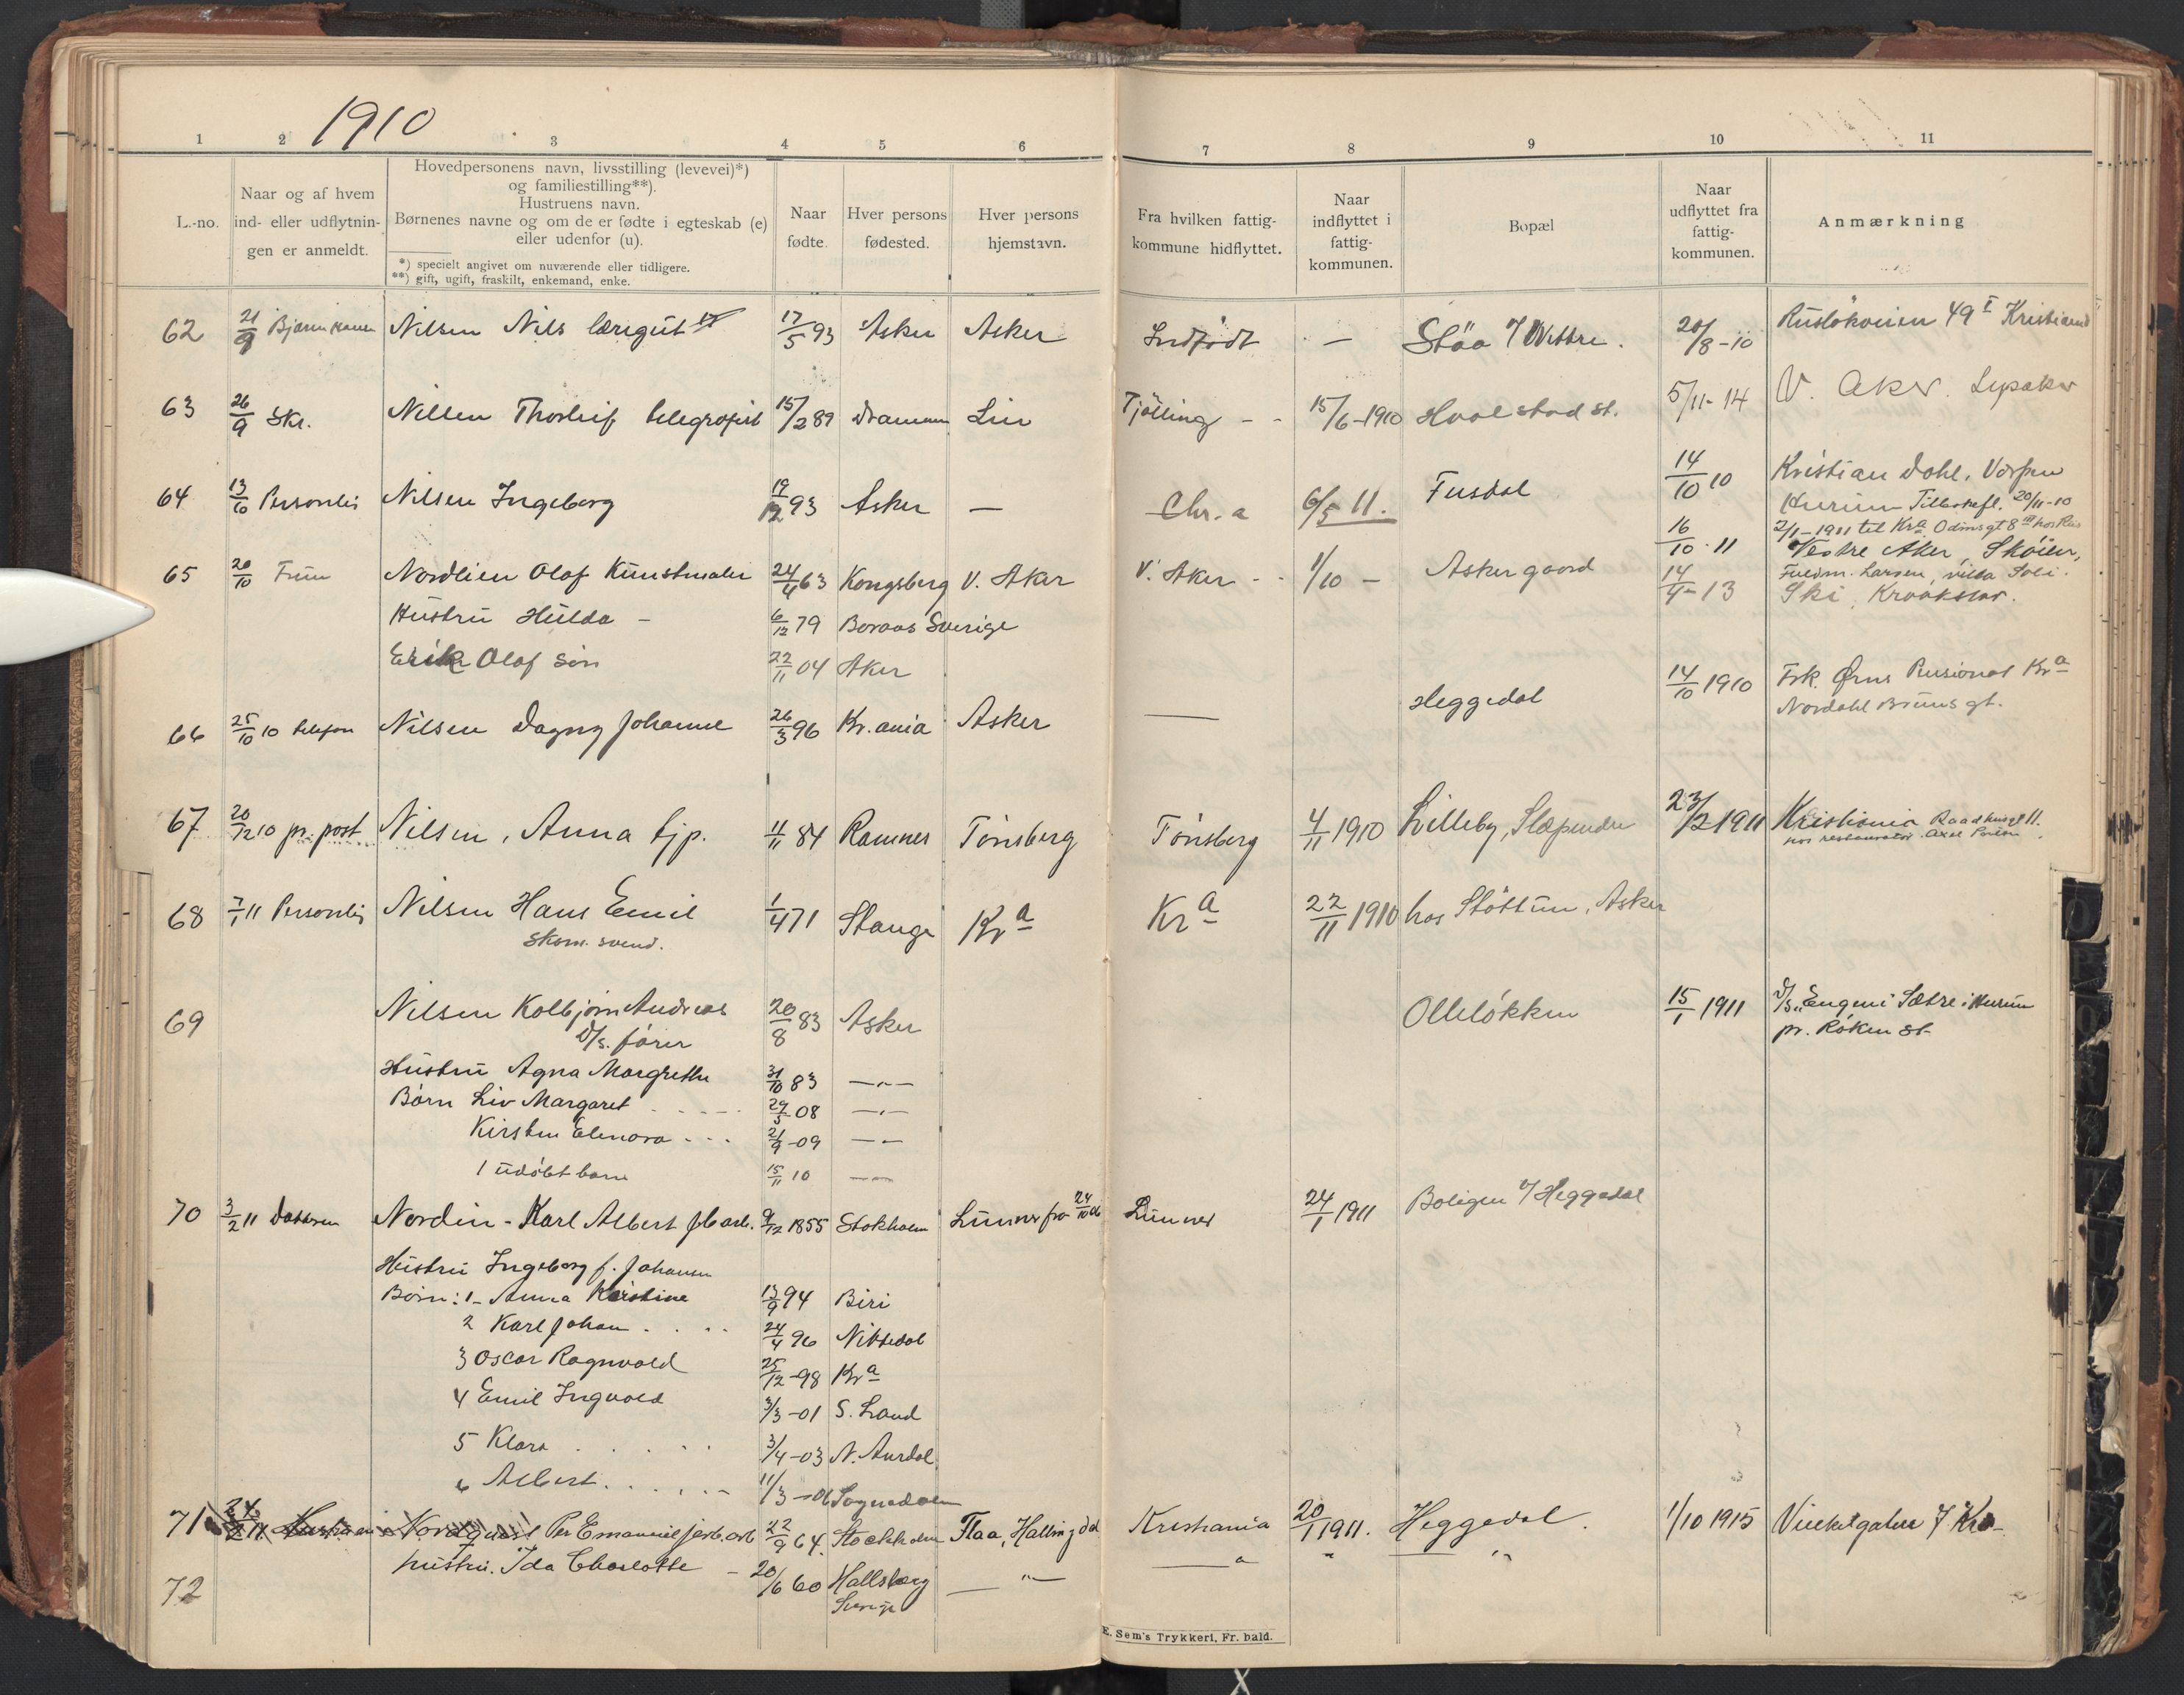 1910
1 2 3 4 5 6 7 8 9 10 11
L.-no.
Naar og af hvem
ind- eller udflytnin-
gen er anmeldt.
Hovedpersonens navn, livsstilling (levevei)*)
og familiestilling**).
Hustruens navn.
Børnenes navne og om de er fødte i egteskab (e)
eller udenfor (u).
*) specielt angivet om nuværende eller tidligere.
**) gift, ugift, fraskilt, enkemand, enke.
Naar
fødte.
Hver persons
fødested.
Hver persons
hjemstavn.
Fra hvilken fattig-
kommune hidflyttet.
Naar
indflyttet i
fattig-
kommunen.
Bopæl
Naar
udflyttet fra
fattig-
kommunen.
Anmærkning
62 21/9 Nilsen Nils læregut 17/5 93 Asker Asker Indfødt — Støa v/ Vettre. 20/8-10 Rusløkveien 49 I
63 26/9 Skr. Nilsen Thorleif telegrafist 15/2 89 Drammen Lier Tjølling - - 15/6-1910 Hvalstad st. 5/11-14 V. Aker. Lysaker
64 13/10 Personlig Nilsen Ingeborg 19/12 93 Asker — Chr.a 6/5 11. Fusdal 14/10 10 Kristian Dahl,
Hurum Tilbakefl. 20/11-10
2/1-1911 til Kra Odinsgt 8
16/10-11 Vestre Aker, Skøien,
65 26/10 Nordlien Olaf Kunstmaler 24/4 63 Kongsberg V. Aker V. Aker - - 1/10 - Asker gaard
Fuldm. Larsen, villa Soli.
14/4-13 Ski, Kraakstad.
Hustru Hulda - 6/12 79 Boraas Sverige
Erik Olaf søn 22/11 04 Aker
66 25/10 10 telefon Nilsen Dagny Johanne 26/3 96 Kr.ania Asker — Heggedal 14/10 1910 Frk. Ørns Pensionat Kra
Nordahl Bruns gt.
67 20/12 10 pr. post Nilsen, Anna tjp. 4/11 84 Ramnes Tønsberg Tønsberg 4/11 1910 Lilleby, Slæpenden 23/2 1911 Kristiania Raadhusgt 11.
hos restauratør Axel
68 7/1 11 Personlig Nilsen Hans Emil 1/4 71 Stange Kra Kra 22/11 1910 hos Støttum, Asker
skom. svend.
69 Nilsen Kolbjørn Andreas 20/8 83 Asker Olleløkken 15/1 1911 D/S "Eugeni" Sætre i Hurum
D/S. fører pr. Røken st.
Hustru Agna Margrethe 31/10 83 —"—
Børn Liv Margaret 29/5 08 —"—
Kirsten Elenora 21/9-09 —"—
1 udøbt barn 15/11 10 —"—
70 3/2 11 Datteren Nordin - Karl Albert 9/12 1855 Stokholm Lunner fra 24/10 06 Lunner 24/1 1911 Boligen v/ Heggedal
Hustru Ingeborg f. Johansen
Børn: 1 - Anna Kirstine 13/9 94 Biri
2 Karl Johan 24/4 96 Nittedal
3 Oscar Ragnvald 25/12-98 Kra
4 Emil Ingvald 3/3-01 S. Land
5 Klara 3/4-03 N. Aurdal
6 Albert 11/3-06 Sognedalen
71 24/2 11 Nordquist Per Emanuel jernb.arb 22/9 64. Stockholm Flaa, Hallingdal Kristiania 20/1 1911. Heggedal. 1/10 1915 7 Kra
hustru. Ida Charlotte - 20/6 60 Hallsberg —"— —"— " —"—
Sverige
72
E. Sem's Trykkeri, Fr. hald.